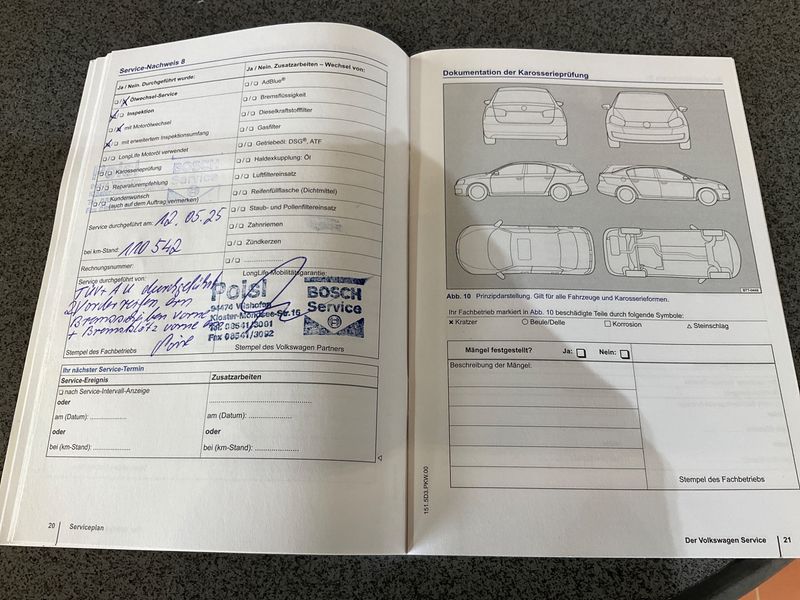 Service-Nachweis 8
Ja / Nein. Durchgeführt wurde:
Ja / Nein. Zusatzarbeiten – Wechsel von:
❑/❑ Ölwechsel-Service
❑/❑ Inspektion
❑/❑ mit Motorölwechsel
❑/❑ mit erweitertem Inspektionsumfang
❑/❑ LongLife Motoröl verwendet
❑/❑ Karosserieprüfung
❑/❑ Reparaturempfehlung
❑/❑ Kundenwunsch
(auch auf dem Auftrag vermerken)
❑/❑ AdBlue®
❑/❑ Bremsflüssigkeit
❑/❑ Dieselkraftstofffilter
❑/❑ Gasfilter
❑/❑ Getriebeöl: DSG®, ATF
❑/❑ Haldexkupplung: Öl
❑/❑ Luftfiltereinsatz
❑/❑ Reifenfüllflasche (Dichtmittel)
❑/❑ Staub- und Pollenfiltereinsatz
❑/❑ Zahnriemen
❑/❑ Zündkerzen
❑/❑ ....................
BOSCH
Service
Service durchgeführt am: 12.05.25
bei km-Stand: 110.542
Rechnungsnummer:
Service durchgeführt von:
LongLife-Mobilitätsgarantie:
TÜV + AU durchgeführt
2 Vorderreifen
Bremsscheiben vorne
+ Bremsklötz vorne
Poisl
94474 Vilshofen
Kloster-Mondsee-Str.16
Tel 08541/3001
Fax 08541/3092
BOSCH
Service
Stempel des Fachbetriebs
Stempel des Volkswagen Partners
Ihr nächster Service-Termin
Service-Ereignis
Zusatzarbeiten
❑ nach Service-Intervall-Anzeige
oder
am (Datum): ....................
oder
bei (km-Stand): ....................
........................................
am (Datum): ....................
oder
bei (km-Stand): ....................
20 Serviceplan
Dokumentation der Karosserieprüfung
B71-0468
Abb. 10 Prinzipdarstellung. Gilt für alle Fahrzeuge und Karosserieformen.
Ihr Fachbetrieb markiert in Abb. 10 beschädigte Teile durch folgende Symbole:
× Kratzer ○ Beule/Delle □ Korrosion △ Steinschlag
Mängel festgestellt? Ja: ❑ Nein: ❑
Beschreibung der Mängel:
Stempel des Fachbetriebs
151.5D3.PKW.00
Der Volkswagen Service 21